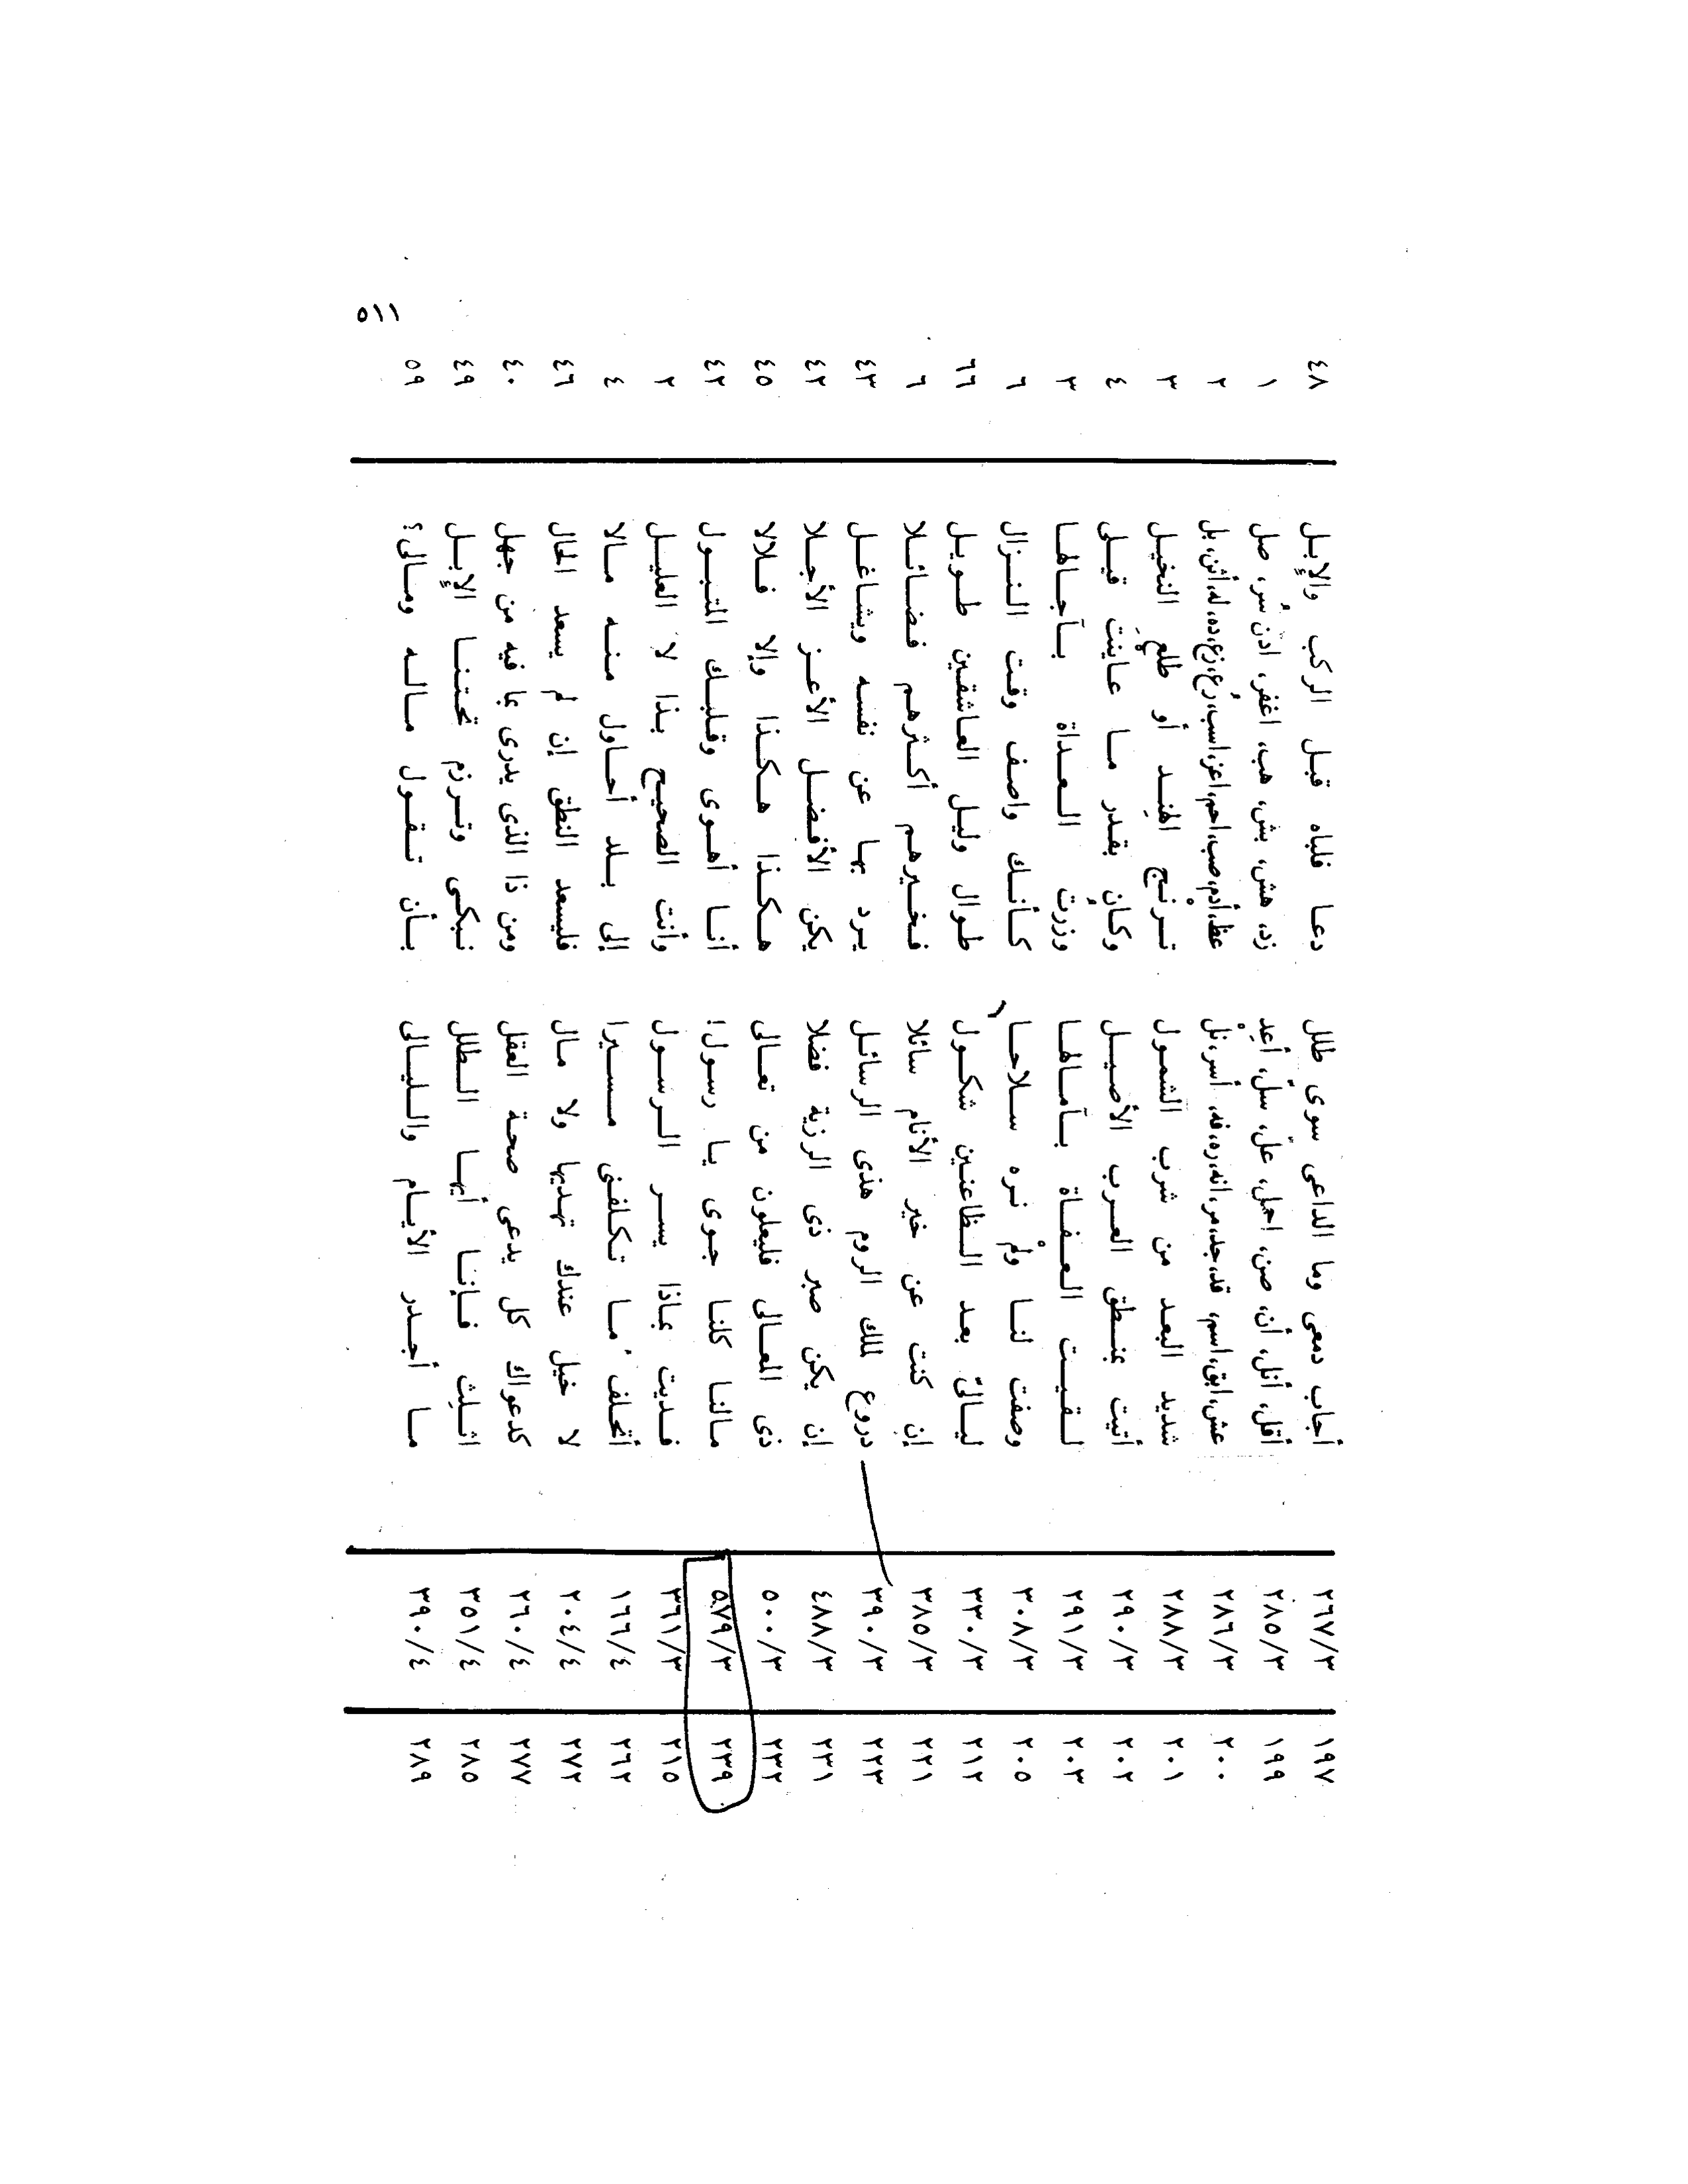 ١٩٧ ٢٦٧/٣ أجاب دمعى وما الداعى سوى طلل دعا فلباه قبل الركب والإبل ٤٨
١٩٩ ٢٨٥/٣ أقل، أنل، أن، صن، احمل، علّ، سلّ، أعِدْ زد، هش، بش، هب، اغفر، ادن سُر، صل ١
٢٠٠ ٢٨٦/٣ عش، ابق، اسم، قد، جد، مر، انه، ره، فه، أسر، نل عظ، أدم، صب، احم، اعز، اسب، رُع، زع، ده، له، أثن، بل ٢
٢٠١ ٢٨٨/٣ شديد البعد من شرب الشمول ترنْج الهِند أو طلع النخيل ٣
٢٠٢ ٢٩٠/٣ أتيت بمنطق العرب الأصيل وكان بقدر ما عاينت قيلى ٤
٢٠٣ ٢٩١/٣ لقيت العفاة بآمالها وزرت العداة بآجالها ٣
٢٠٥ ٣٠٨/٣ وصفت لنا ولْم نره سلاحا كأنك واصف وقت النزال ٦
٢١٢ ٣٣٠/٣ ليالىّ بعد الظاعنين شكول طوال وليل العاشقين طويل ٦٦
٢٢١ ٣٨٥/٣ إن كنت عن خير الأنام سائلا فخيرهم أكثرهم فضائلا ٦
٢٢٣ ٣٩٠/٣ دروع لملك الروم هذى الرسائل يرد بها عن نفسه ويشاغل ٤٣
٢٣١ ٤٨٨/٣ إن يكن صبر ذى الرزية فضلا يكن الأفضل الأعز الأجلا ٤٢
٢٣٢ ٥٠٠/٣ ذى المعالى فليعلون من تعالى هكذا هكذا وإلا فلالا ٤٥
٢٣٩ ٥٧٩/٣ مالنا كلنا جوى يا رسول! أنا أهوى وقلبك المتبول ٤٢
٢١٥ ٣٦١/٣ فديت بماذا يسر الرسول وأنت الصحيح بذا لا العليل ٢
٢٦٢ ١٦٦/٤ أتحلف ما تكلفنى مسيرا إلى بلد أحاول منه مالا ٤
٢٧٢ ٢٠٤/٤ لا خيل عندك تهديها ولا مال فليسعد النطق إن لم يسعد الحال ٤٦
٢٧٧ ٢٦٠/٤ كدعواك كل يدعى صحة العقل ومن ذا الذى يدرى بما فيه من جهل ٤٠
٢٨٥ ٣٥١/٤ اثلث فإنا أيها الطلل نبكى وترزم تحتنا الإبل ٤٩
٢٨٩ ٣٩٠/٤ ما أجدر الأيام والليالى بأن تقول ماله ومالى؟ ٥٩
٥١١